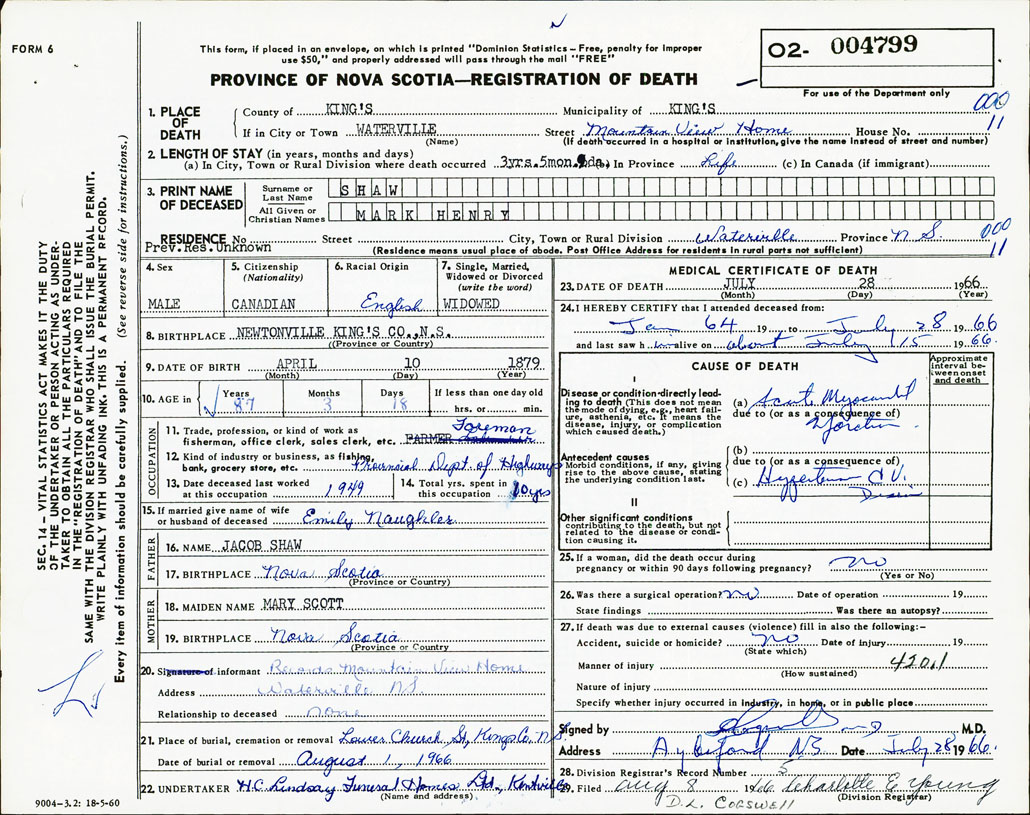 FORM 6
This form, if placed in an envelope, on which is printed "Dominion Statistics – Free, penalty for improper
use $50," and properly addressed will pass through the mail "FREE"
PROVINCE OF NOVA SCOTIA—REGISTRATION OF DEATH
O2- 004799
For use of the Department only
000
11
1. PLACE OF DEATH
County of KING'S Municipality of KING'S
If in City or Town WATERVILLE Street Mountain View Home House No.
(Name) (If death occurred in a hospital or institution, give the name instead of street and number)
2. LENGTH OF STAY (in years, months and days)
(a) In City, Town or Rural Division where death occurred 3yrs.5mon. da. In Province Life (c) In Canada (if immigrant)
3. PRINT NAME OF DECEASED
Surname or Last Name SHAW
All Given or Christian Names MARK HENRY
RESIDENCE No Street City, Town or Rural Division Waterville Province N S.
000
11
Prev.Res.Unknown (Residence means usual place of abode. Post Office Address for residents in rural parts not sufficient)
4. Sex
MALE
5. Citizenship
(Nationality)
CANADIAN
6. Racial Origin
English
7. Single, Married,
Widowed or Divorced
(write the word)
WIDOWED
8. BIRTHPLACE NEWTONVILLE KING'S CO.,N.S.
(Province or Country)
9. DATE OF BIRTH APRIL 10 1879
(Month) (Day) (Year)
10. AGE in Years Months Days If less than one day old
87 3 18 hrs. or min.
OCCUPATION
11. Trade, profession, or kind of work as Foreman
fisherman, office clerk, sales clerk, etc. FARMER
12. Kind of industry or business, as fishing,
bank, grocery store, etc. Provincial Dept. of Highways
13. Date deceased last worked
at this occupation 1949
14. Total yrs. spent in
this occupation 10yrs
15. If married give name of wife
or husband of deceased Emily Naughler
FATHER
16. NAME JACOB SHAW
17. BIRTHPLACE Nova Scotia
(Province or Country)
MOTHER
18. MAIDEN NAME MARY SCOTT
19. BIRTHPLACE Nova Scotia
(Province or Country)
20. Signature of informant Records Mountain View Home
Address Waterville N.S.
Relationship to deceased none
21. Place of burial, cremation or removal Lower Church St, Kings Co. N.S.
Date of burial or removal August 1, 1966
22. UNDERTAKER H.C. Lindsay Funeral Homes Ltd., Kentville
(Name and address)
MEDICAL CERTIFICATE OF DEATH
23. DATE OF DEATH JULY 28 1966
(Month) (Day) (Year)
24. I HEREBY CERTIFY that I attended deceased from:
Jan 64 19 to July 28 1966
and last saw h im alive on about July 15 1966.
CAUSE OF DEATH
Approximate
interval be-
tween onset
and death
I
Disease or condition directly lead-
ing to death (This does not mean
the mode of dying, e.g., heart fail-
ure, asthenia, etc. It means the
disease, injury, or complication
which caused death.)
(a) Acute Myocardial
due to (or as a consequence of)
Antecedent causes
Morbid conditions, if any, giving
rise to the above cause, stating
the underlying condition last.
(b)
due to (or as a consequence of)
(c) C.V.
Disease
II
Other significant conditions
contributing to the death, but not
related to the disease or condi-
tion causing it.
25. If a woman, did the death occur during
pregnancy or within 90 days following pregnancy? no
(Yes or No)
26. Was there a surgical operation? no Date of operation 19
State findings Was there an autopsy?
27. If death was due to external causes (violence) fill in also the following:–
Accident, suicide or homicide? no Date of injury 19
(State which)
Manner of injury 420.1
(How sustained)
Nature of injury
Specify whether injury occurred in industry, in home, or in public place
Signed by M.D.
Address Aylesford NS Date July 28 1966.
28. Division Registrar's Record Number 5
29. Filed Aug 8 1966 Charlotte E Young
(Division Registrar)
D.L. COGSWELL
SEC. 14 – VITAL STATISTICS ACT MAKES IT THE DUTY
OF THE UNDERTAKER OR PERSON ACTING AS UNDER-
TAKER TO OBTAIN ALL THE PARTICULARS REQUIRED
IN THE "REGISTRATION OF DEATH" AND TO FILE THE
SAME WITH THE DIVISION REGISTRAR WHO SHALL ISSUE THE BURIAL PERMIT.
WRITE PLAINLY WITH UNFADING INK. THIS IS A PERMANENT RECORD.
Every item of information should be carefully supplied. (See reverse side for instructions.)
9004–3.2: 18-5-60